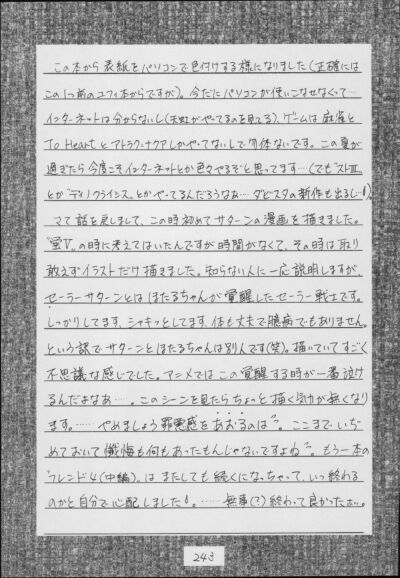 この本から表紙をパソコンで色付けする様になりました(正確には
この1つ前のユフィ本からですが)。今だにパソコンが使いこなせなくて…
インターネットは分からないし(天虹がやってるのを見てる)、ゲームは麻雀と
To Heartとアトラク=ナクアしかやってないしで勿体ないです。この夏が
過ぎたら今度こそインターネットとか色々やるぞと思ってます…(でも"ストⅢ"
とか"ディノクライシス"とかやってるんだろうなあ…ダビスタの新作も出るし…)
さて話を戻しまして、この時初めてサターンの漫画を描きました。
"蛍Ⅴ"の時に考えてはいたんですが時間がなくて、その時は取り
敢えずイラストだけ描きました。知らない人に一応説明しますが、
セーラーサターンとはほたるちゃんが覚醒したセーラー戦士です。
しっかりしてます、シャキッとしてます、体も丈夫で臆病でもありません。
という訳でサターンとほたるちゃんは別人です(笑)。描いていてすごく
不思議な感じでした。アニメではこの覚醒する時が一番泣け
るんだよなあ…。このシーンを見たらちょっと描く気力が無くなり
ます。……やめましょう罪悪感をあおるのは。ここまでいぢ
めておいて懺悔も何もあったもんじゃないですよね。もう一本の
"フレンド4(中編)"はまたしても続くになっちゃって、いつ終わる
のかと自分で心配しました。……無事(?)終わって良かったぁ。
243